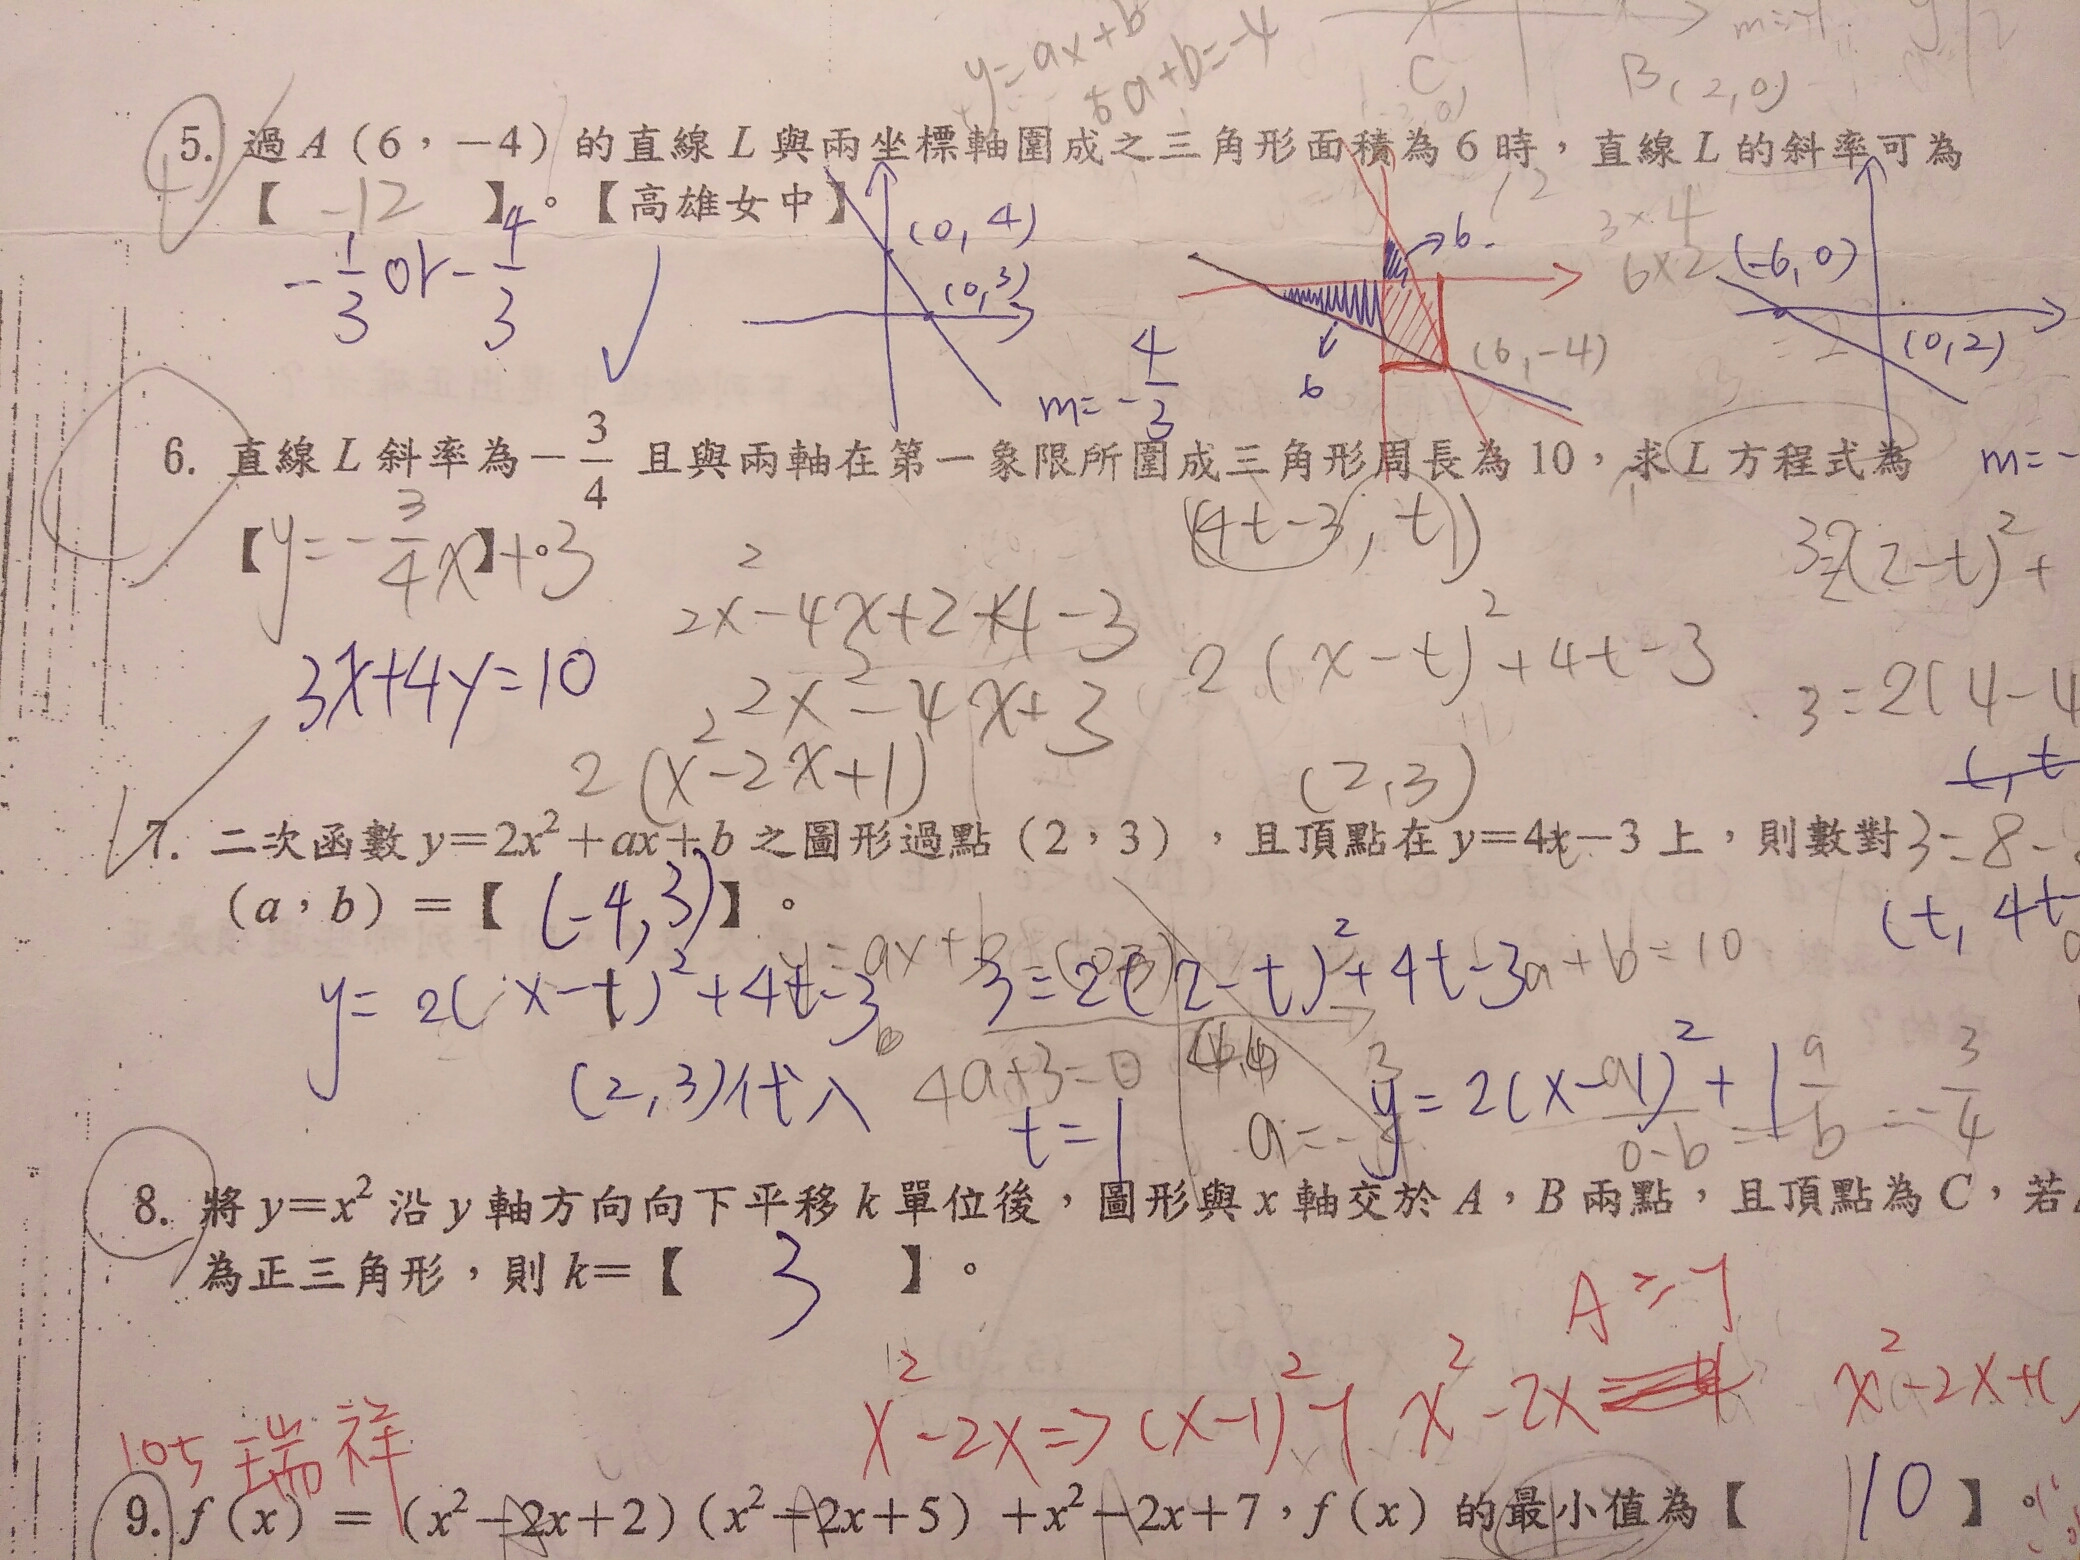 y=ax+b
6a+b=-4
C
B(2,0)
5. 過A(6,-4)的直線L與兩坐標軸圍成之三角形面積為6時,直線L的斜率可為
【 -12 】。【高雄女中】
12
3×4
6×2
-1/3 or -4/3
(0,4)
(0,3)
m=-4/3
6
6
(6,-4)
(-6,0)
(0,2)
m=-
6. 直線L斜率為-3/4且與兩軸在第一象限所圍成三角形周長為10,求L方程式為
【y=-3/4x】+3。
(4t-3, t)
3=2(2-t)²+
2x²-4x+2+4-3
2(x-t)²+4t-3
3x+4y=10
2x²-4x+3
3=2(4-4
2(x²-2x+1)
(2,3)
7. 二次函數y=2x²+ax+b之圖形過點(2,3),且頂點在y=4x-3上,則數對
3=8-
(a,b)=【 (-4,3) 】。
(t, 4t
y=ax+b
a+b=10
y=2(x-t)²+4t-3
3=2(2-t)²+4t-3
(2,3)代入
4a+3=0
t=1
y=2(x-1)²+1
8. 將y=x²沿y軸方向向下平移k單位後,圖形與x軸交於A,B兩點,且頂點為C,若
為正三角形,則k=【 3 】。
A≥-1
x²-2x=>(x-1)²-1
x²-2x
x²-2x+1
105 瑞祥
9. f(x)=(x²-2x+2)(x²-2x+5)+x²-2x+7,f(x)的最小值為【 10 】。